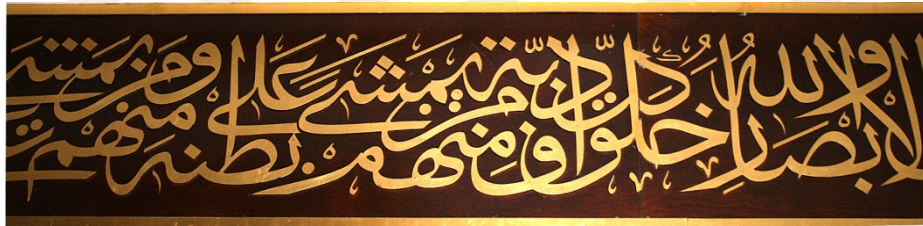 الأبصار والله خلق كل دابة من ماء فمنهم من يمشى على بطنه ومنهم من يمشى